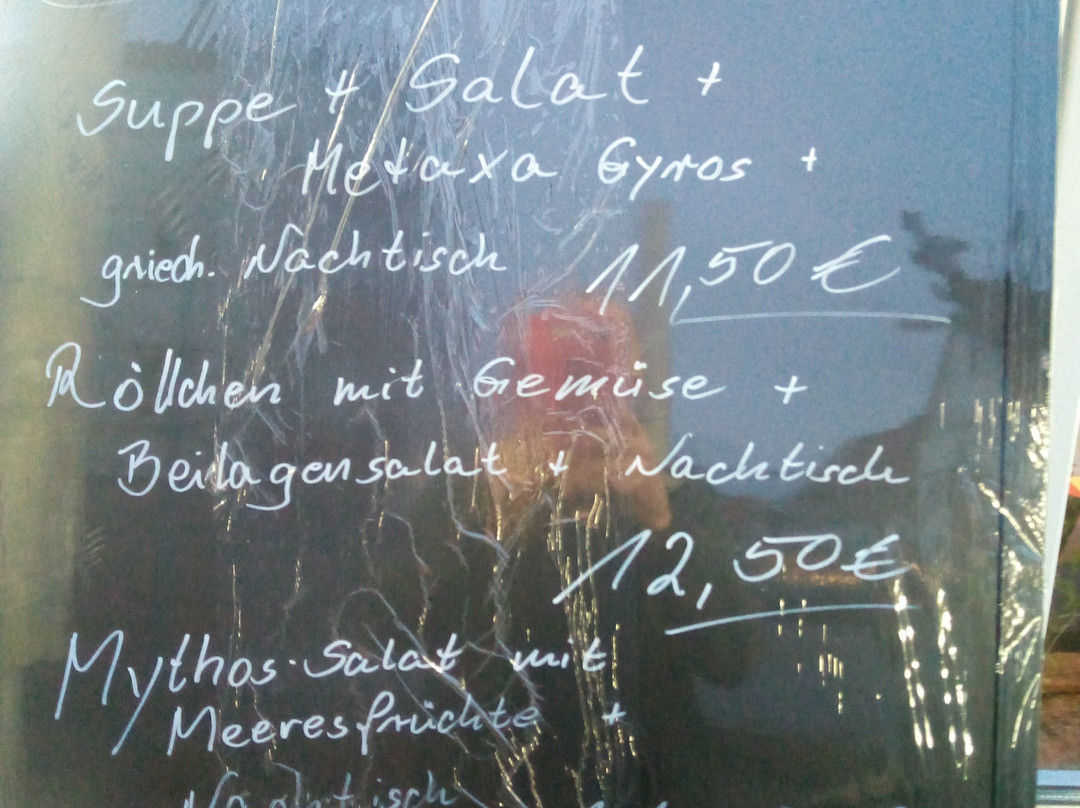 Suppe + Salat +
Metaxa Gyros +
griech. Nachtisch 11,50 €
Röllchen mit Gemüse +
Beilagensalat + Nachtisch
12,50 €
Mythos-Salat mit
Meeresfrüchte +
Nachtisch